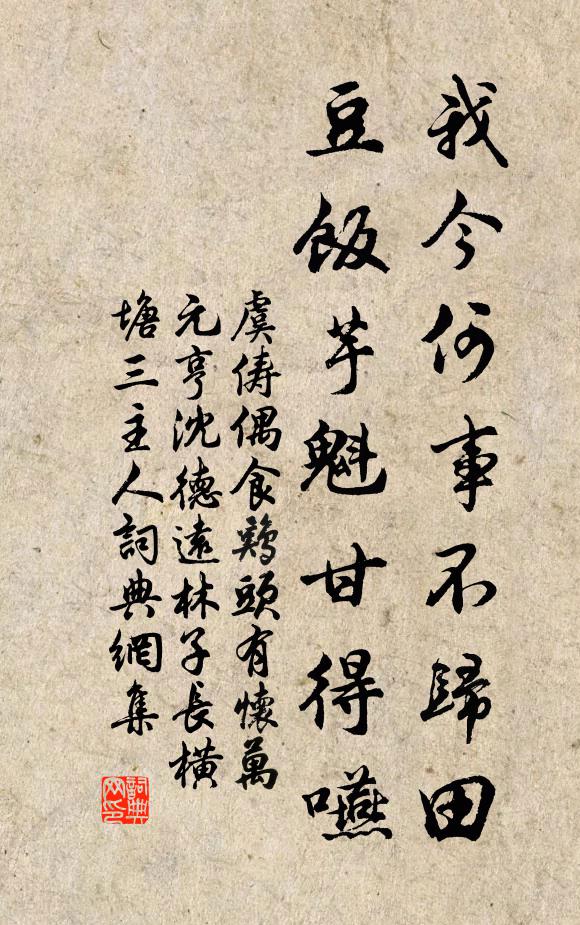 我今何事不歸田
豆飯芋魁甘得嚥
虞儔偶食鷄頭有懷萬
元亨沈德遠林子長橫
塘三主人詞典網集
詞典
网印